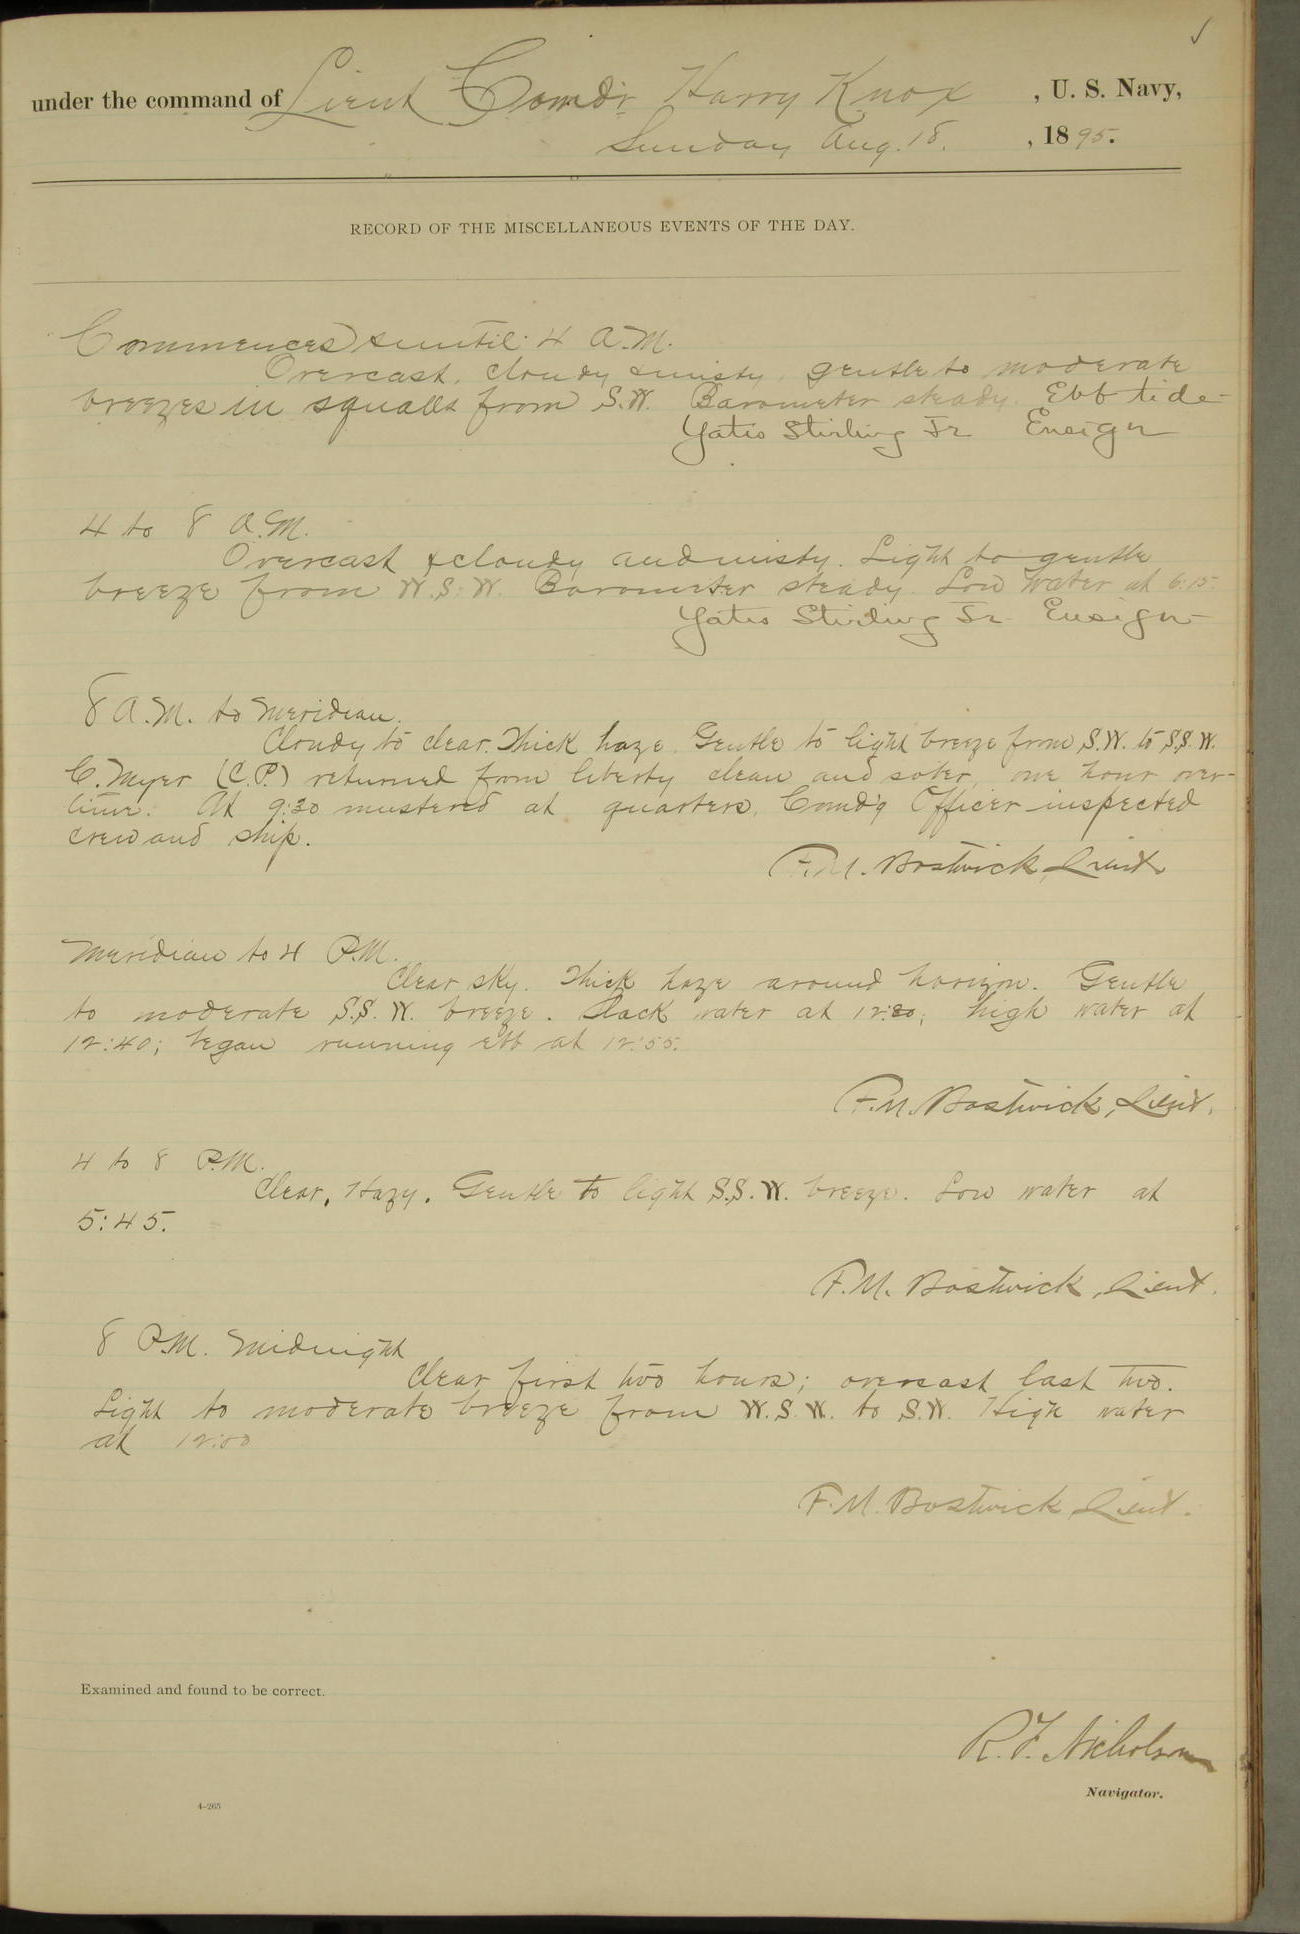 under the command of Lieut Comdr Harry Knox, U. S. Navy,
Sunday Aug. 18, 1895.
RECORD OF THE MISCELLANEOUS EVENTS OF THE DAY.
Commences & until 4 A.M.
Overcast, cloudy & misty, gentle to moderate
breezes in squalls from S.W. Barometer steady. Ebb tide
Yates Stirling Jr Ensign
4 to 8 A.M.
Overcast & cloudy and misty. Light to gentle
breeze from W.S.W. Barometer steady. Low water at 6:15
Yates Stirling Jr Ensign
8 A.M. to Meridian.
Cloudy to clear. Thick haze. Gentle to light breeze from S.W. to S.S.W.
C. Myer (C.P.) returned from liberty clean and sober, one hour over-
time. At 9:30 mustered at quarters, Comd'g Officer inspected
crew and ship.
F.M. Bostwick, Lieut
Meridian to 4 P.M.
Clear sky. Thick haze around horizon. Gentle
to moderate S.S.W. breeze. Slack water at 12:30; high water at
12:40; began running ebb at 12:55.
F.M. Bostwick, Lieut.
4 to 8 P.M.
Clear, Hazy. Gentle to light S.S.W. breeze. Low water at
5:45.
F.M. Bostwick, Lieut.
8 P.M. Midnight
Clear first two hours; overcast last two.
Light to moderate breeze from W.S.W. to S.W. High water
at 12:00
F.M. Bostwick, Lieut.
Examined and found to be correct.
R.F. Nicholson
Navigator.
4-265